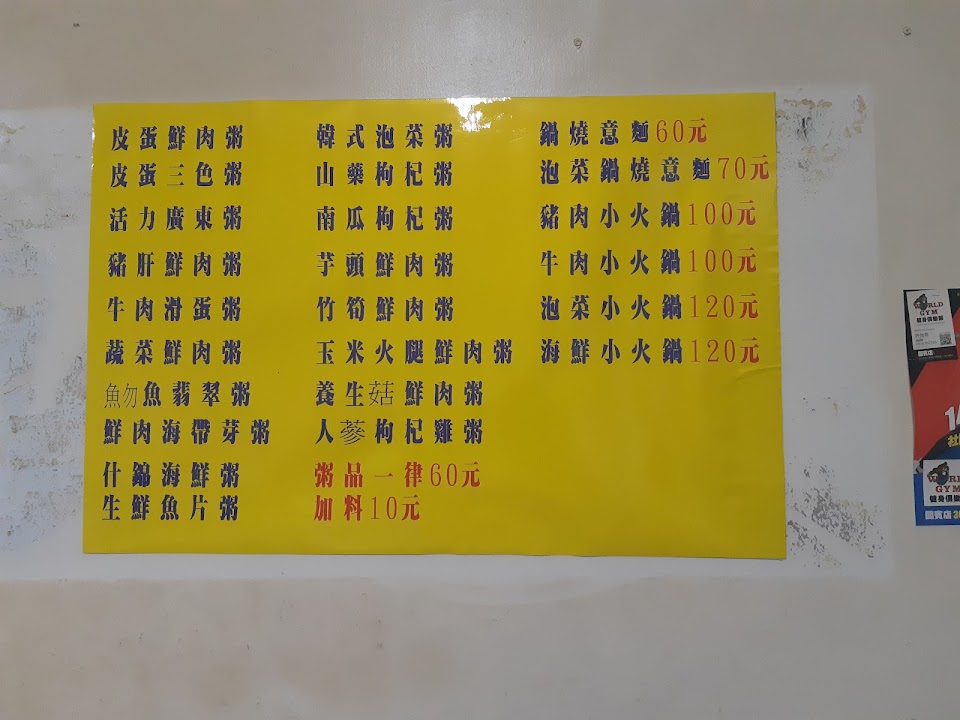 皮蛋鮮肉粥
皮蛋三色粥
活力廣東粥
豬肝鮮肉粥
牛肉滑蛋粥
蔬菜鮮肉粥
魚勿魚翡翠粥
鮮肉海帶芽粥
什錦海鮮粥
生鮮魚片粥
韓式泡菜粥
山藥枸杞粥
南瓜枸杞粥
芋頭鮮肉粥
竹筍鮮肉粥
玉米火腿鮮肉粥
養生菇鮮肉粥
人蔘枸杞雞粥
粥品一律60元
加料10元
鍋燒意麵60元
泡菜鍋燒意麵70元
豬肉小火鍋100元
牛肉小火鍋100元
泡菜小火鍋120元
海鮮小火鍋120元
WORLD
GYM
健身俱樂部
WORLD
GYM
健身俱樂